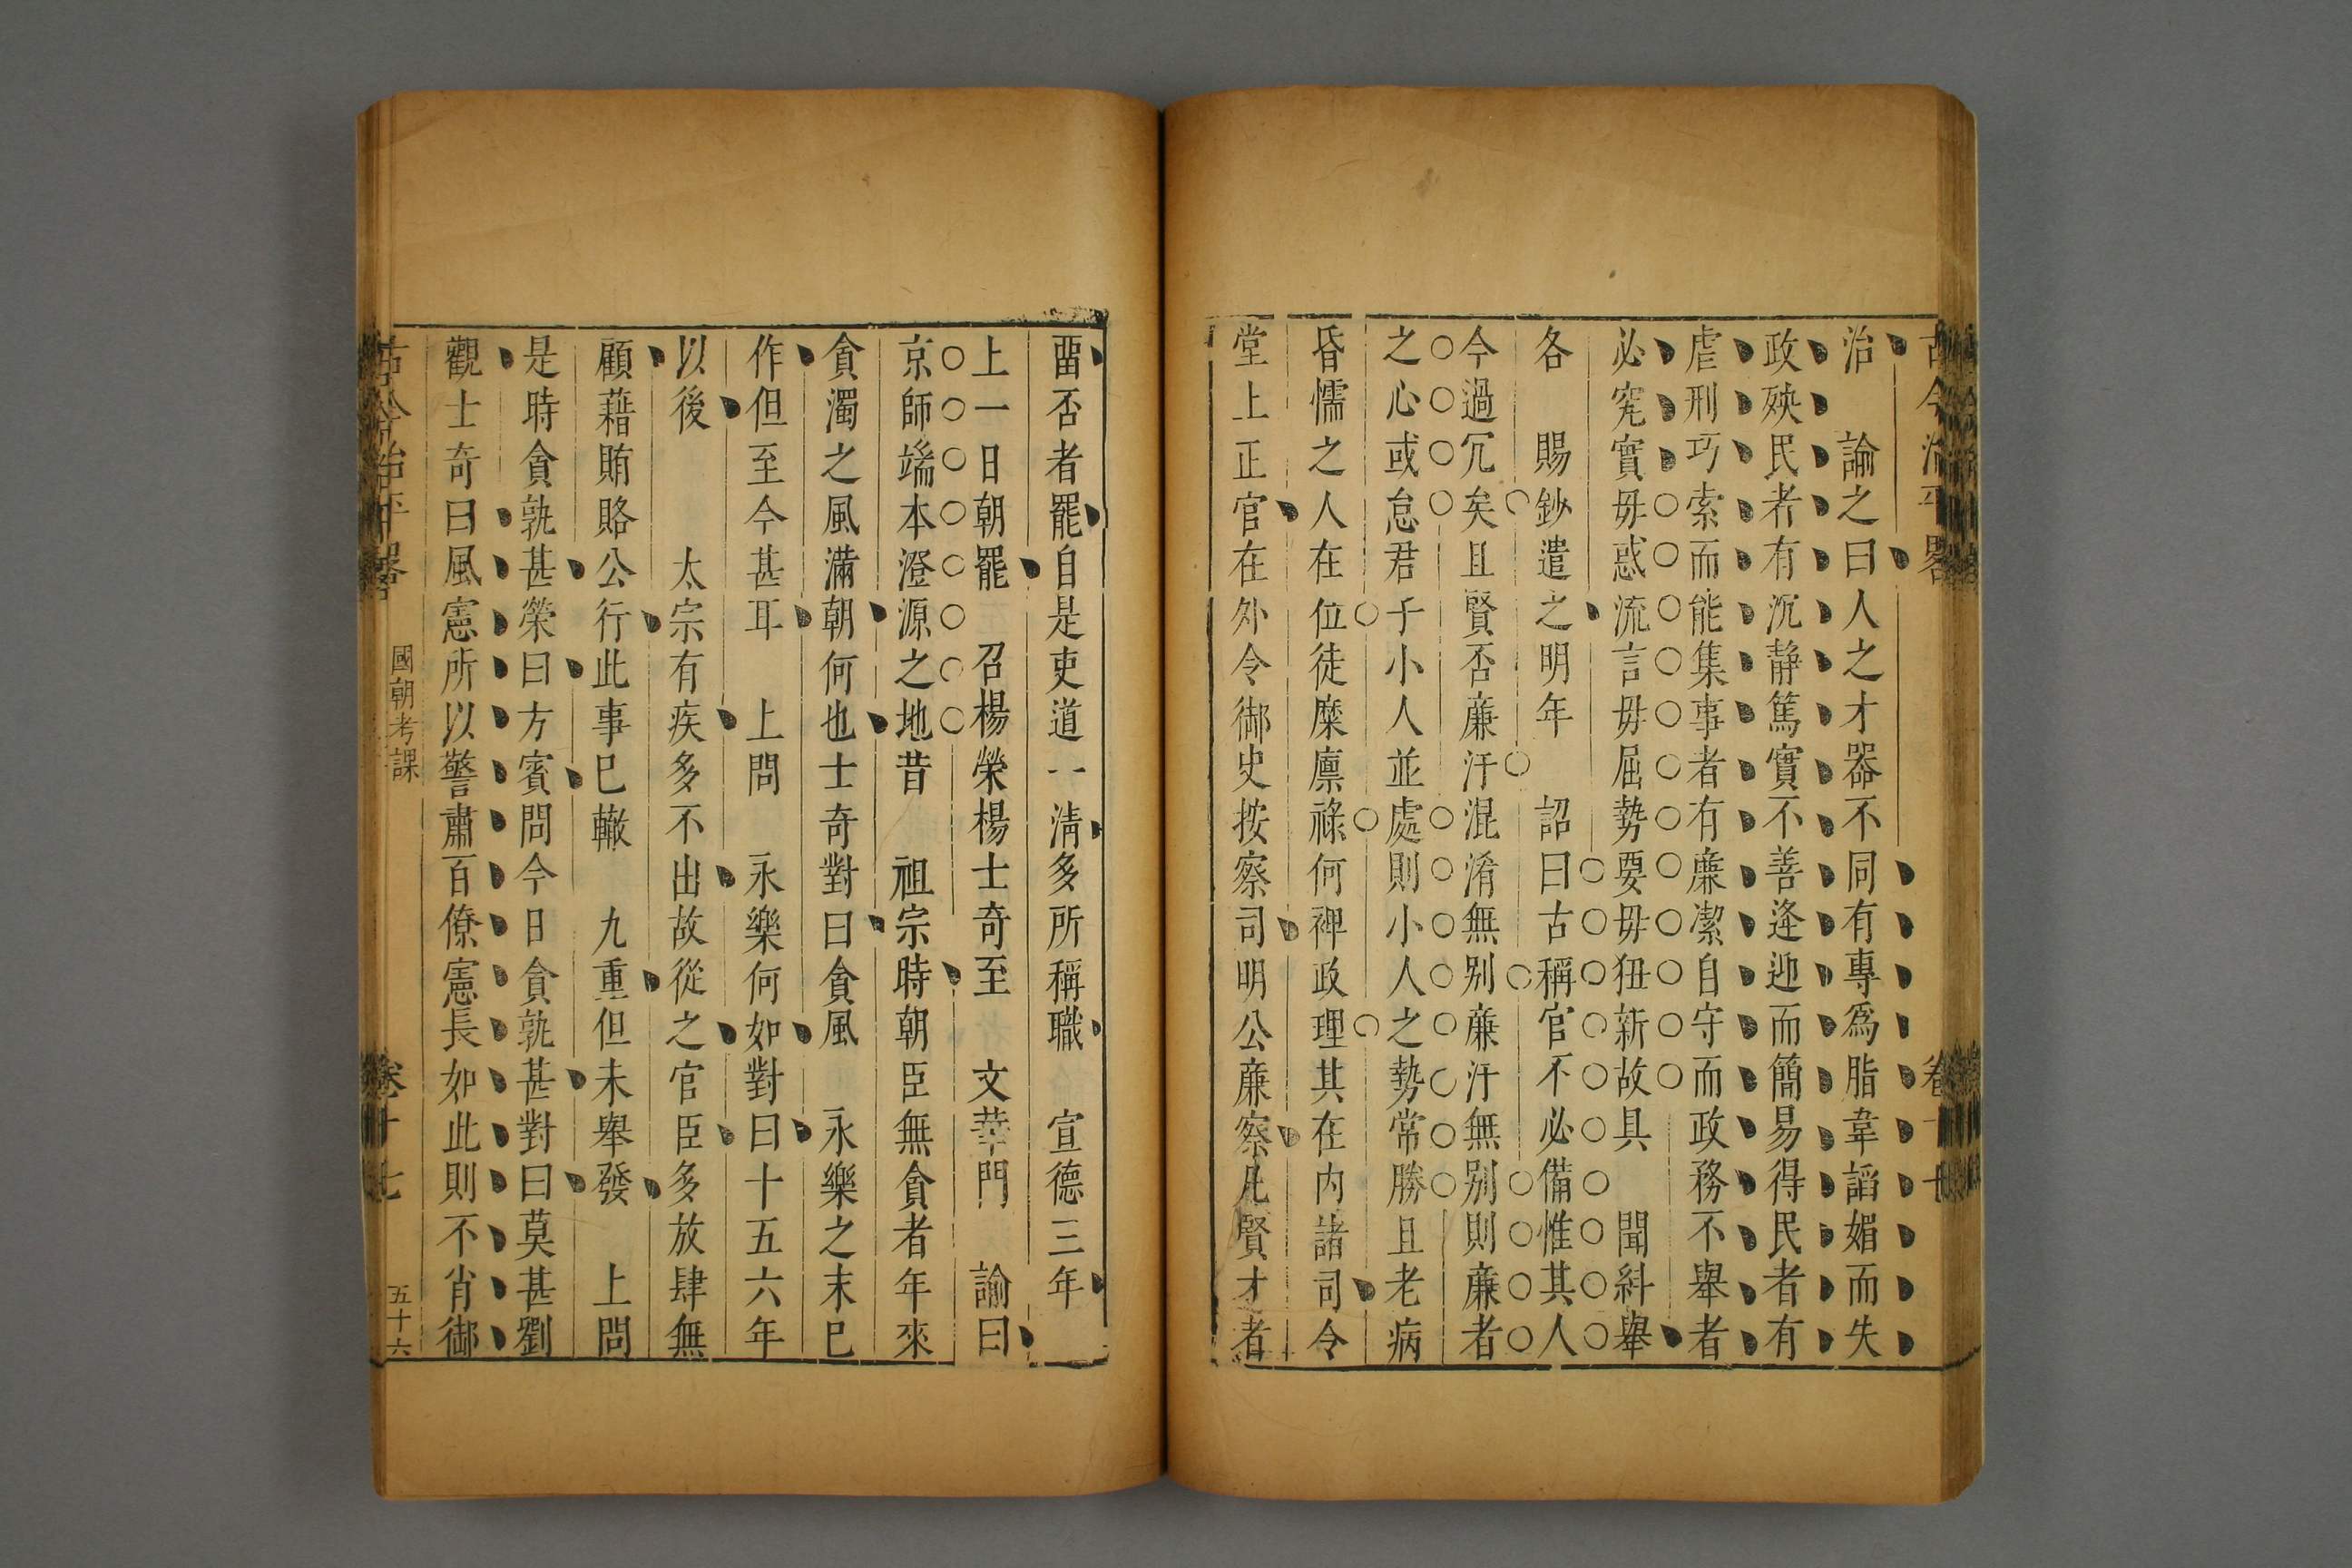 古今治平畧 卷十七
治 諭之曰人之才器不同有專爲脂韋諂媚而失
政殃民者有沉静篤實不善逄迎而簡易得民者有
虐刑巧索而能集事者有廉潔自守而政務不舉者
必究實毋惑流言毋屈勢要毋狃新故具 聞糾舉
各 賜鈔遣之明年 詔曰古稱官不必備惟其人
今過冗矣且賢否廉汙混淆無别廉汙無别則廉者
之心或怠君子小人並處則小人之勢常勝且老病
昏懦之人在位徒糜廩祿何裨政理其在内諸司令
堂上正官在外令御史按察司明公廉察凡賢才者
畱否者罷自是吏道一清多所稱職 宣德三年
上一日朝罷 召楊榮楊士奇至 文華門 諭曰
京師端本澄源之地昔 祖宗時朝臣無貪者年來
貪濁之風滿朝何也士奇對曰貪風 永樂之末已
作但至今甚耳 上問 永樂何如對曰十五六年
以後 太宗有疾多不出故從之官臣多放肆無
顧藉賄賂公行此事已轍 九重但未舉發 上問
是時貪孰甚榮曰方賓問今日貪孰甚對曰莫甚劉
觀士奇曰風憲所以警肅百僚憲長如此則不肖御
古今治平畧 國朝考課 卷十七 五十六